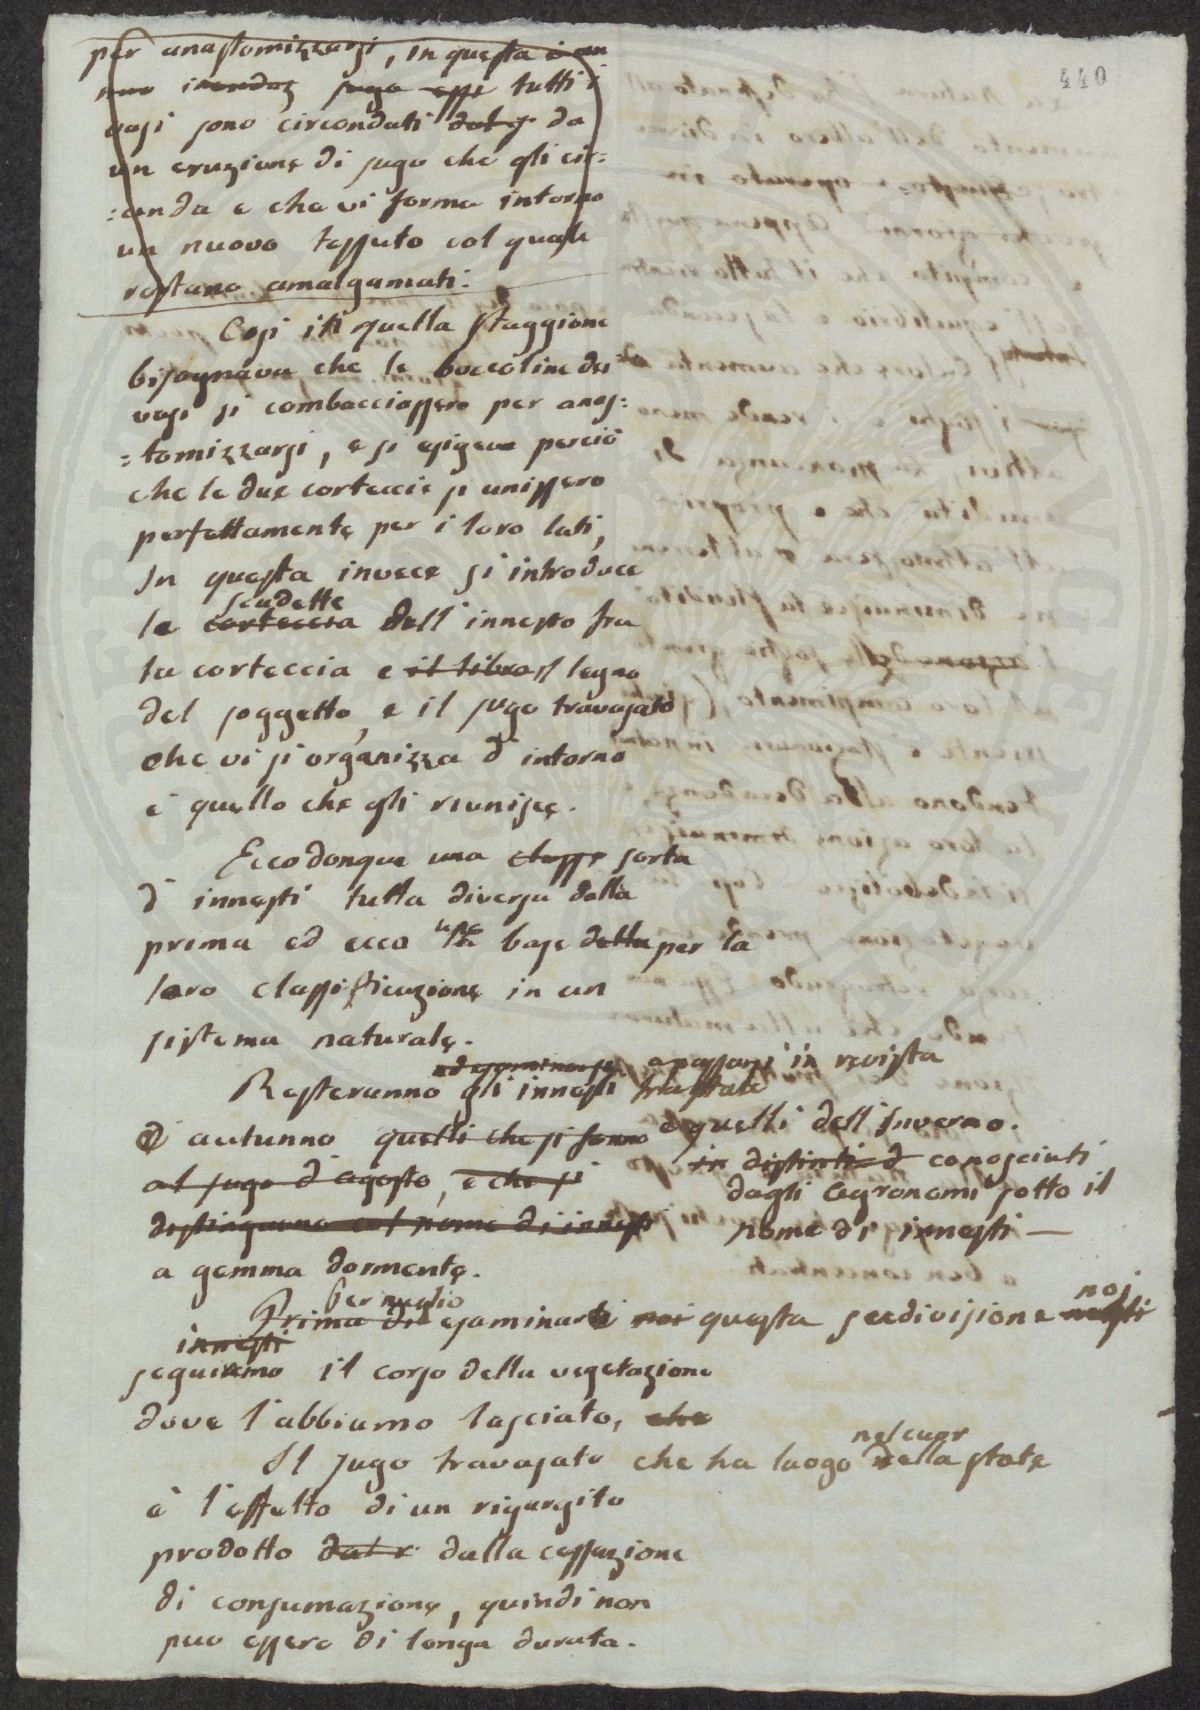 440
per anastomizzarsi, in questa è un
sugo essi tutti i
vasi sono circondati dal s da
un eruzione di sugo che gli cir=
=conda e che vi forma intorno
un nuovo tessuto col quale
restano amalgamati.
Così in quella staggione
bisognava che le boccoline dei
vasi si combacciassero per anas=
=tomizzarsi, e si esigeva perciò
che le due corteccie si unissero
perfettamente per i loro lati,
In questa invece si introduce
scudette
la corteccia dell'innesto fra
la corteccia e il libro il legno
del soggetto, e il sugo travasato
che vi si organizza d'intorno
è quello che gli riunisce.
Ecco donque una classe sorta
d'innesti tutta diversa dalla
prima ed ecco una base della per la
loro classificazione in un
sistema naturale.
ad esaminarsi a passarsi in revista
Resteranno gli innesti
d'autunno quelli che si fanno e quelli dell'Inverno.
al sugo d'agosto, e che si in distinti d conosciuti
dagli Agronomi sotto il
distinguono col nome di innesti nome di innesti —
a gemma dormente.
Per meglio
Prima di esaminare noi questa seedivisione noi
innesti
seguiremo il corso della vegetazione
dove l'abbiamo lasciato, che
nel cuor
Il sugo travasato che ha luogo della state
è l'effetto di un rigurgito
prodotto dal r dalla cessazione
di consumazione, quindi non
puo essere di longa durata.